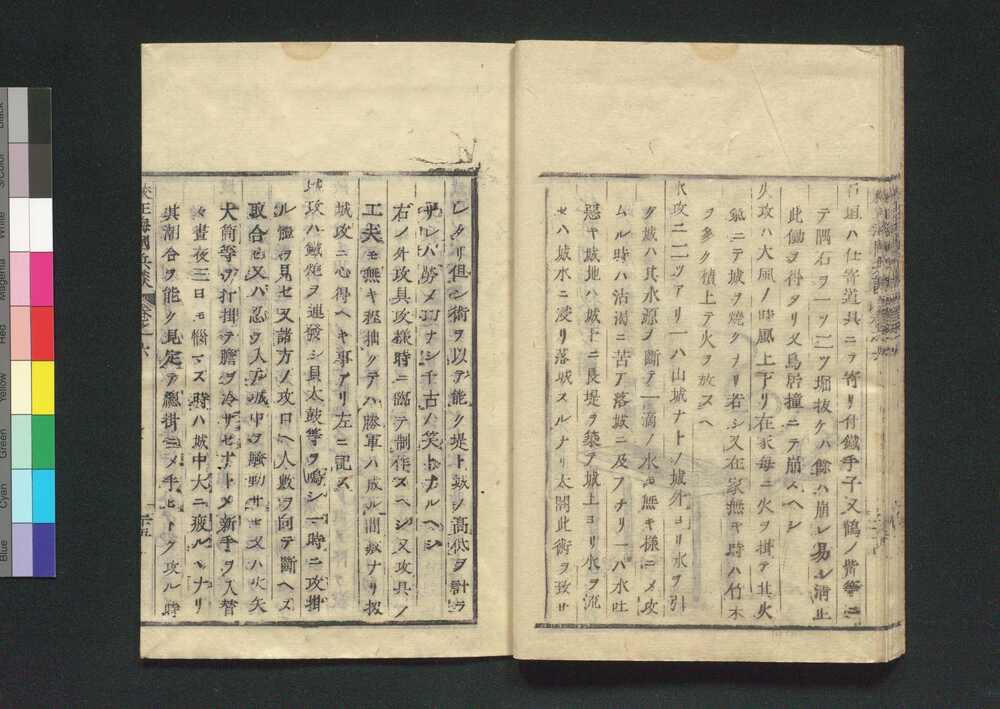 垣ハ仕寄道具ニテ寄リ付鐵手子又鶴ノ觜等ニ
テ隅石ヲ一ツ二ツ堀抜ケハ餘ハ崩レ易シ清正
此働ヲ得タリ又鳥居撞ニテ崩スヘシ
火攻ハ大風ノ時風上下リ在家毎ニ火ヲ揖テ其火
氣ニテ城ヲ燒クナリ若シ又在家無キ時ハ竹木
ヲ多ク積上テ火ヲ放スヘ
水攻ニ二ツアリ一ハ山城ナトノ城外ヨリ水ヲ引
ク城ハ其水源ノ斷テ一滴ノ水モ無キ様ニメ攻
ムル時ハ沽渇ニ苦テ落城ニ及フナリ一ハ水吐
惡キ城地ハ城下ニ長堤ヲ築テ城土ヨリ水ヲ流
セハ城水ニ浸リ落城スルナリ太閤此術ヲ致サ
レタリ但シ術ヲ以テ能ク堤ト城ノ高低ヲ計ラ
サレバ勞メ功ナシ千古ノ笑トナルヘシ
右ノ外攻具攻様時ニ臨テ制作スヘシ又攻具ノ
工夫モ無キ程拙クテハ勝軍ハ成ル間敷ナリ扨
城攻ニ心得ヘキ事アリ左ニ記ス
攻ハ鐵炮ヲ連發シ貝太鼓等ヲ鳴シ一時ニ攻掛
ル體ヲ見セ又諸方ノ攻口ヘ人數ヲ向テ斷ヘズ
取合セ又ハ忍ヲ入テ城中ヲ騒動サセ又ハ火矢
大筒等ヲ打掛テ膽ヲ冷サセナトメ新手ヲ入替
々晝夜三日モ惱マス時ハ城中大ニ疲ルヽナリ
其潮合ヲ能ク見定テ惣掛ニメ手ヒトク攻ル時
海國兵談 卷之六